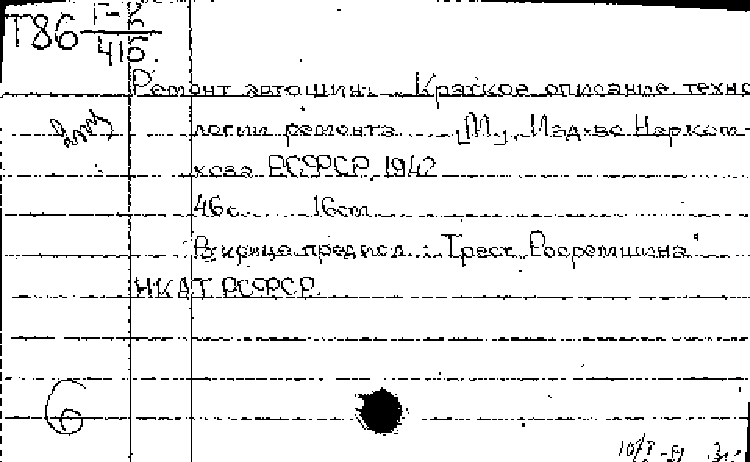 Т86 Г-В
416.
Ремонт автошин. Краткое описание техно
логии ремонта. М., Изд-во Нарком
хоза РСФСР, 1942
46 с. 16 cm
Вверху предисл.: Трест "Росремшина"
НКАТ РСФСР.
6